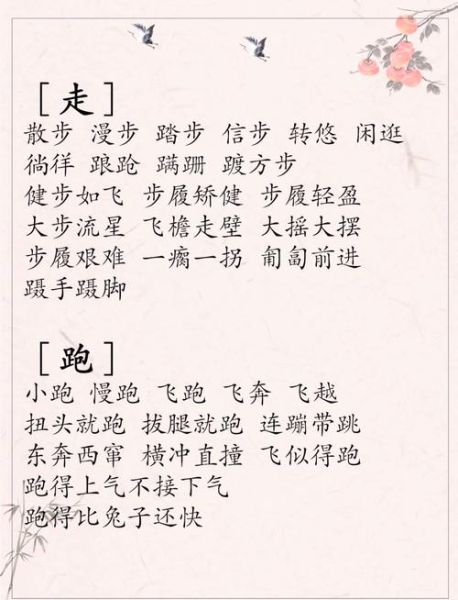 [走]
散步 漫步 踏步 信步 转悠 闲逛
徜徉 踉跄 蹒跚 踱方步
健步如飞 步履矫健 步履轻盈
大步流星 飞檐走壁 大摇大摆
步履艰难 一瘸一拐 匍匐前进
蹑手蹑脚
[跑]
小跑 慢跑 飞跑 飞奔 飞越
扭头就跑 拔腿就跑 连蹦带跳
东奔西窜 横冲直撞 飞似得跑
跑得上气不接下气
跑得比兔子还快